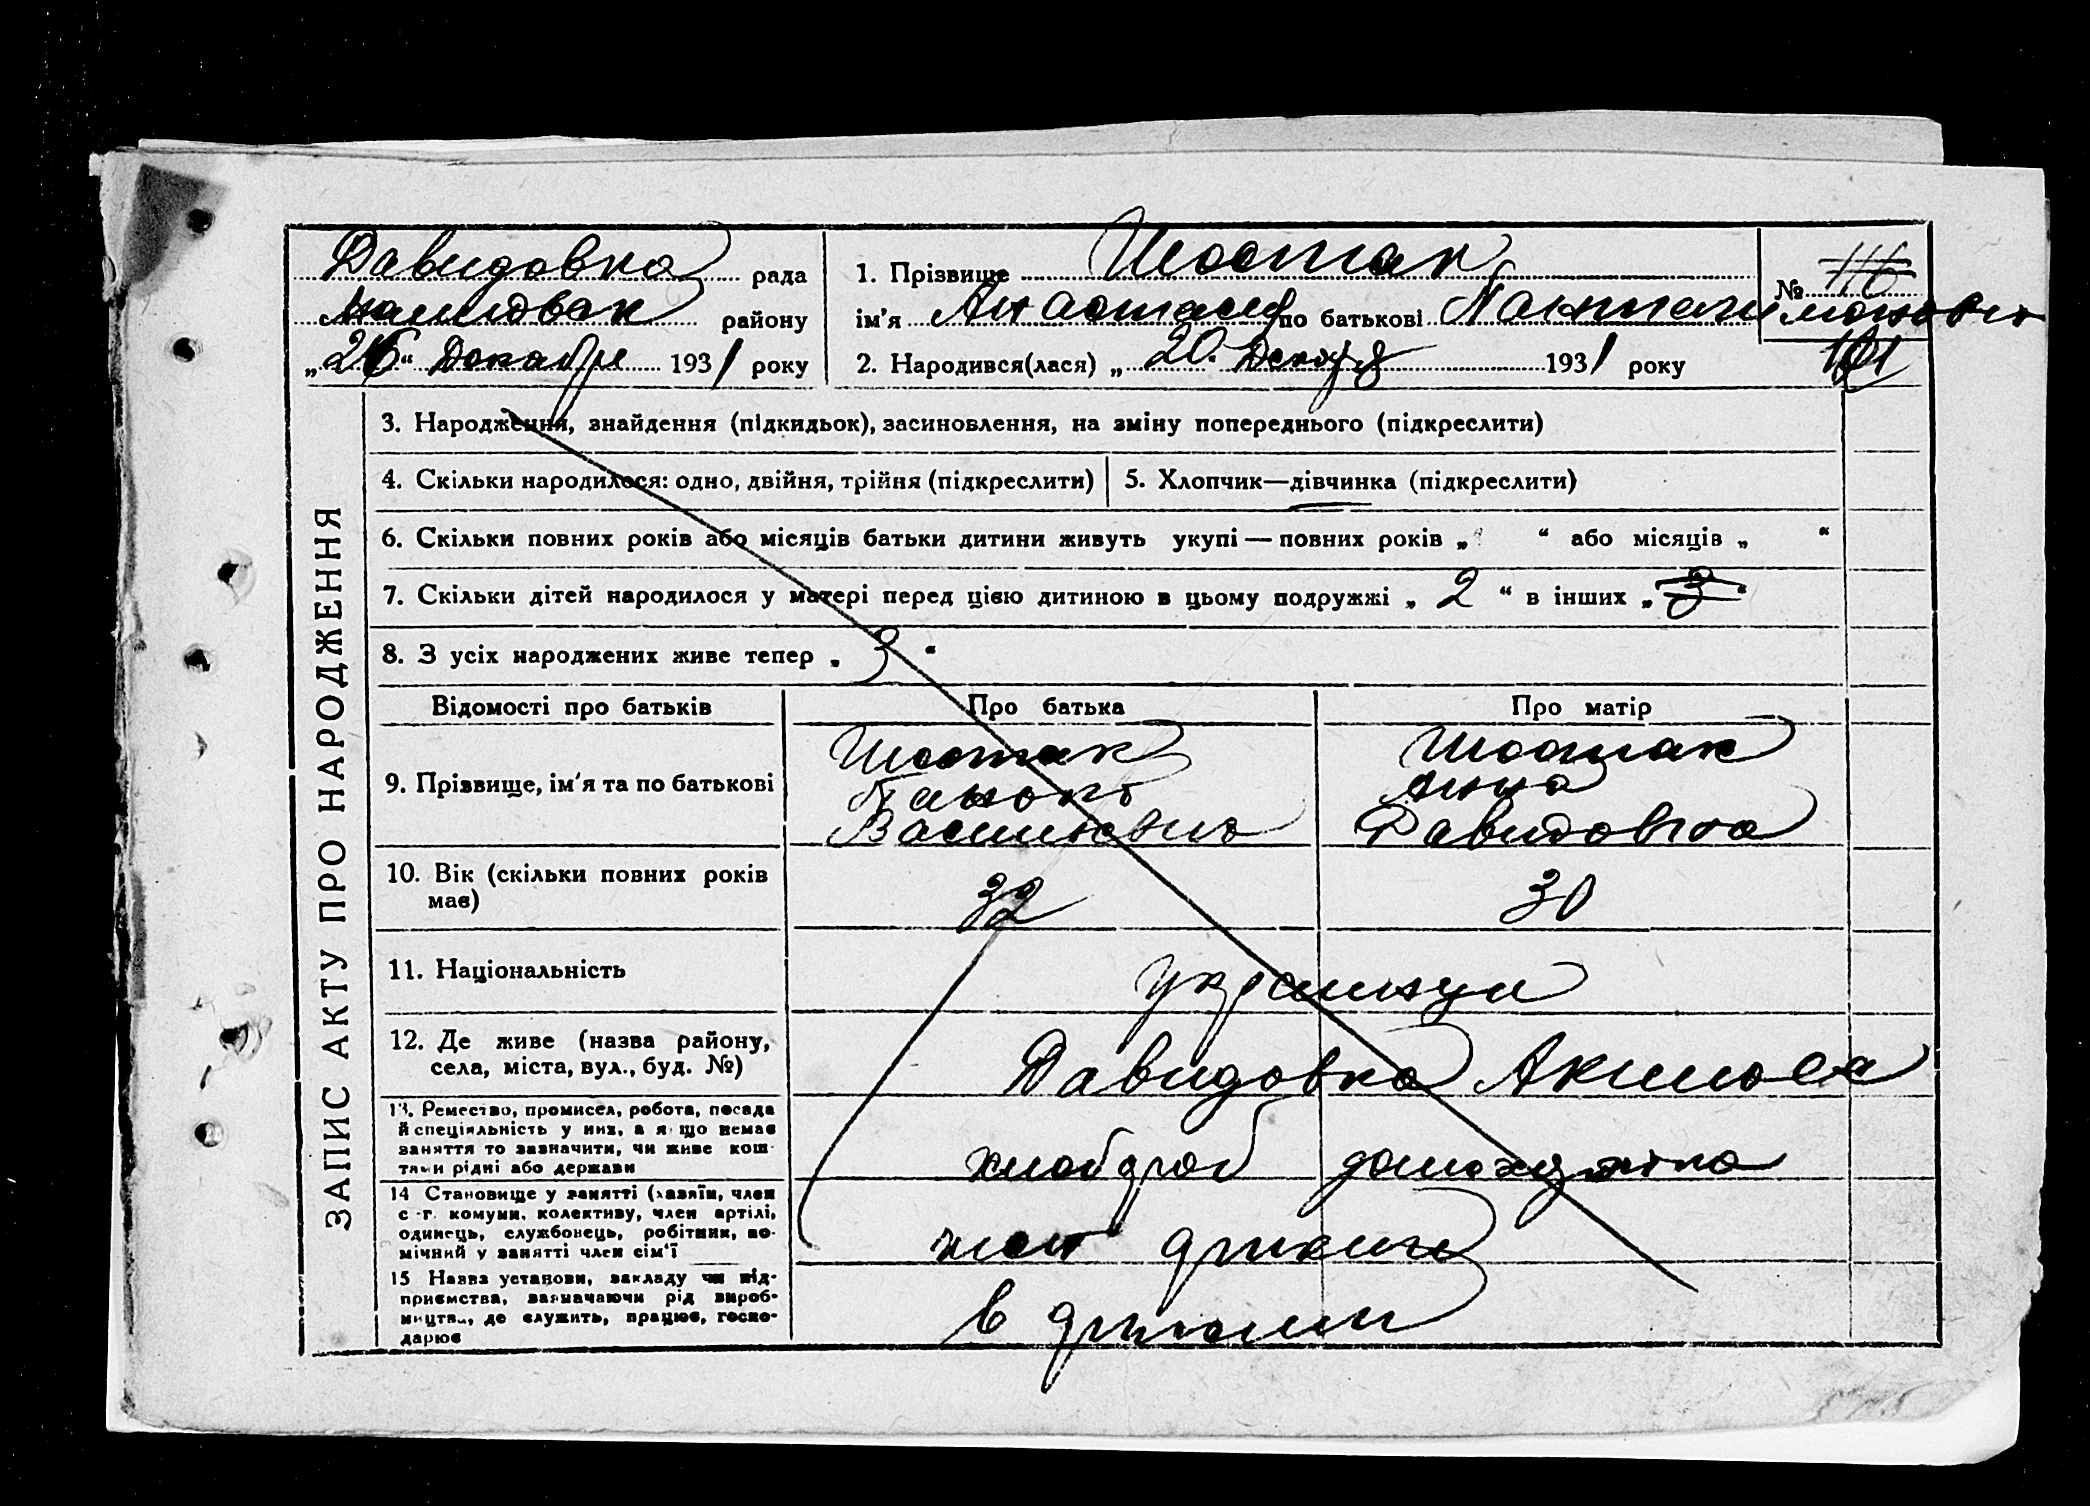 Давидовка рада
району
„26“ Декабря 1931 року
1. Прізвище Шостак
№ 116
ім'я Анастасия по батькові
2. Народився(лася) „20. Декабря 1931 року
101
ЗАПИС АКТУ ПРО НАРОДЖЕННЯ
3. Народження, знайдення (підкидьок), засиновлення, на зміну попереднього (підкреслити)
4. Скільки народилося: одно, двійня, трійня (підкреслити)
5. Хлопчик—дівчинка (підкреслити)
6. Скільки повних років або місяців батьки дитини живуть укупі — повних років „ “ або місяців „ “
7. Скільки дітей народилося у матері перед цією дитиною в цьому подружжі „ 2 “ в інших „ 3 “
8. З усіх народжених живе тепер „ 3 “
Відомості про батьків
Про батька
Про матір
9. Прізвище, ім'я та по батькові
Шостак
Васильевич
Шостак
Анна
Давидовна
10. Вік (скільки повних років
має)
32
30
11. Національність
украинци
12. Де живе (назва району,
села, міста, вул., буд. №)
Давидовка
13. Ремество, промисел, робота, посада
й спеціяльність у них, а якщо немає
заняття то зазначити, чи живе кош-
тами рідні або держави
хлебороб домохозяйка
14 Становище у занятті (хазяїн, член
с.-г. комуни, колективу, член артілі,
одинець, службонець, робітник, по-
мічний у занятті член сім'ї
член артили
15 Назва установи, закладу чи під-
приємства, зазначаючи рід вироб-
ництва, де служить, працює, госпо-
дарює
в артили